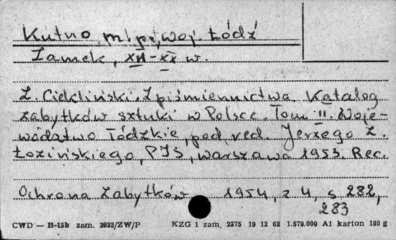 Kutno, m. p., woj. Łódź
Zamek, XVI-XX w.
Z. Ciekliński. Z piśmiennictwa. Katalog
zabytków sztuki w Polsce. Tom II. Woje-
wództwo Łódzkie, pod red. Jerzego Z.
Łozińskiego, PIS, Warszawa 1953. Rec.
Ochrona Zabytków 1954, z 4, s 282,
283
CWD — B-15b zam. 2032/ZW/P KZG 1 zam, 2375 19 12 62 1.570.000 A1 karton 180 g